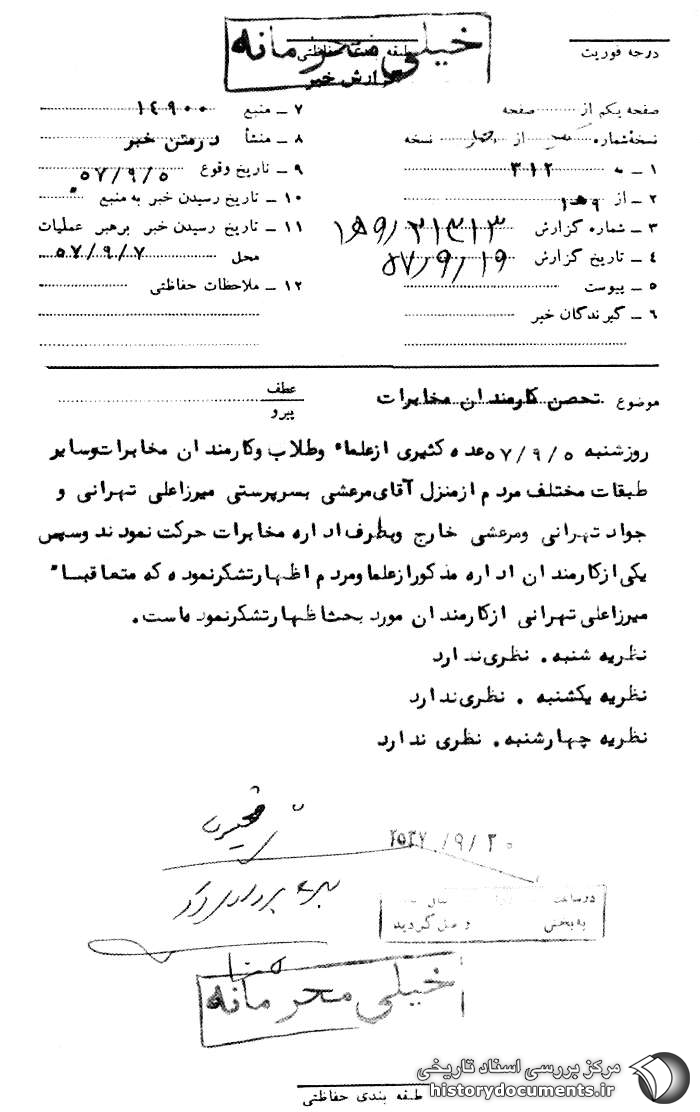 خیلی محرمانه
طبقه بندی حفاظتی
درجه فوریت
گزارش خبر
صفحه یکم از صفحه
نسخه شماره از نسخه
۱ – به ۳۱۲
۲ – از
۳ – شماره گزارش
۴ – تاریخ گزارش ۵۷/۹/۱۹
۵ – پیوست
۶ – گیرندگان خبر
۷ – منبع ۱۴۹۰۰
۸ – منشأ درمتن خبر
۹ – تاریخ وقوع ۵۷/۹/۵
۱۰ – تاریخ رسیدن خبر به منبع
۱۱ – تاریخ رسیدن خبر برهبر عملیات
محل ۵۷/۹/۷
۱۲ – ملاحظات حفاظتی
موضوع تحصن کارمندان مخابرات
عطف
پیرو
روزشنبه ۵۷/۹/۵ عده کثیری ازعلماء وطلاب وکارمندان مخابرات وسایر
طبقات مختلف مردم ازمنزل آقای مرعشی بسرپرستی میرزاعلی تهرانی و
جواد تهرانی ومرعشی خارج وبطرف اداره مخابرات حرکت نمودند وسپس
یکی ازکارمندان اداره مذکورازعلما ومردم اظهارتشکرنموده که متعاقبا"
میرزاعلی تهرانی ازکارمندان مورد بحث اظهارتشکرنموده است.
نظریه شنبه. نظری ندارد
نظریه یکشنبه . نظری ندارد
نظریه چهارشنبه. نظری ندارد
۲۵۳۷/۹/۲۰
در ساعت
به بخش واصل گردید
خیلی محرمانه
مرکز بررسی اسناد تاریخی
historydocuments.ir
طبقه بندی حفاظتی